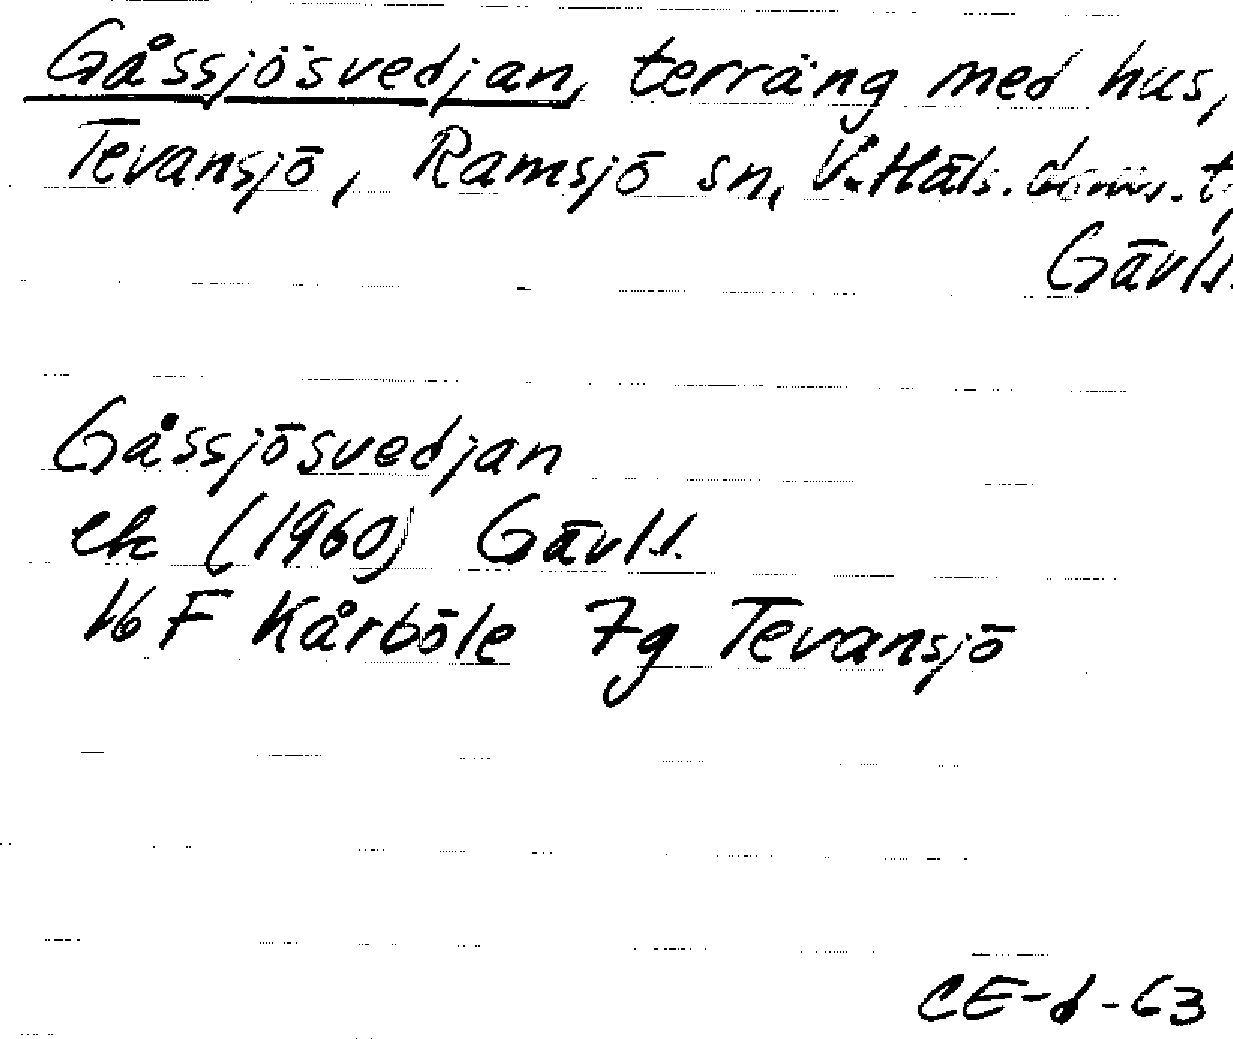 Gåssjösvedjan, terräng med hus,
Tevansjö, Ramsjö sn, V. Häls. doms. t,
Gävl.l.
Gåssjösvedjan
ek (1960) Gävl.l.
16 F Kårböle 7g Tevansjö
CE-d-63